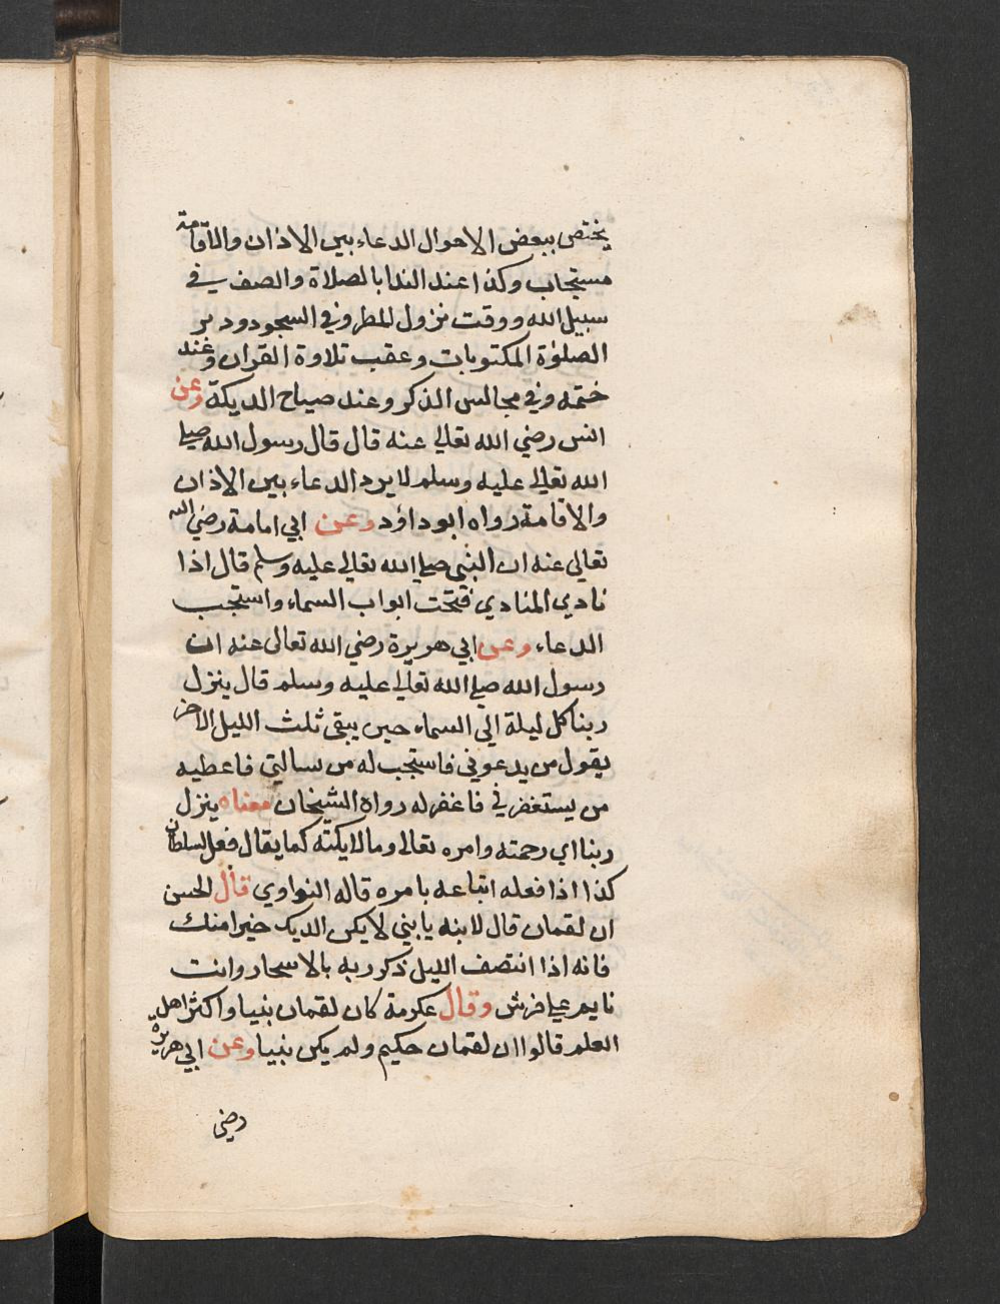 يختص ببعض الاحوال الدعاء بين الاذان والاقامة
مستجاب وكذا عند الندا بالصلاة والصف في
سبيل الله ووقت نزول المطر وفي السجود ودبر
الصلوٰة المكتوبات وعقب تلاوة القران وعند
ختمه وفي مجالس الذكر وعند صياح الديكة وعن
انس رضي الله تعالى عنه قال قال رسول الله صلى
الله تعالى عليه وسلم لا يرد الدعاء بين الاذان
والاقامة رواه ابو داؤد وعن ابي امامة رضي الله
تعالى عنه ان النبي صلى الله تعالى عليه وسلم قال اذا
نادي المنادي فتحت ابواب السماء واستجب
الدعاء وعن ابي هريرة رضي الله تعالى عنه ان
رسول الله صلى الله تعالى عليه وسلم قال ينزل
ربنا كل ليلة الي السماء حين يبقى ثلث الليل الاخر
يقول من يدعوني فاستجب له من سالتي فاعطيه
من يستغفرني فاغفر له رواه الشيخان معناه ينزل
ربنا اي رحمته وامره تعالى وملايكته كما يقال فعل السلطان
كذا اذا فعله اتباعه بامره قاله النواوي قال الحسن
ان لقمان قال لابنه يا بني لا يكن الديك خيرا منك
فانه اذا انتصف الليل ذكر ربه بالاسحار وانت
نايم على فرش وقال عكرمة كان لقمان نبيا واكثر اهل
العلم قالوا ان لقمان حكيم ولم يكن نبيا وعن ابي هريرة
رضي